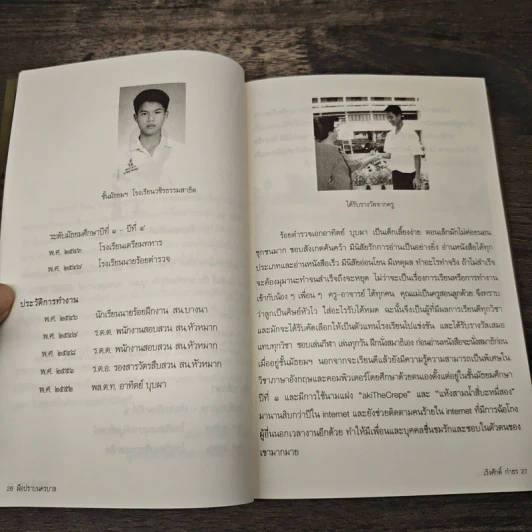 ชั้นมัธยมฯ โรงเรียนวชิรธรรมสาธิต
ระดับมัธยมศึกษาปีที่ ๑ - ปีที่ ๔
พ.ศ. ๒๕๔๖ โรงเรียนเตรียมทหาร
พ.ศ. ๒๕๔๗ โรงเรียนนายร้อยตำรวจ
ประวัติการทำงาน
พ.ศ. ๒๕๔๖ นักเรียนนายร้อยฝึกงาน สน.บางนา
พ.ศ. ๒๕๔๗ ร.ต.ต. พนักงานสอบสวน สน.หัวหมาก
พ.ศ. ๒๕๔๘ ร.ต.ท. พนักงานสอบสวน สน.หัวหมาก
พ.ศ. ๒๕๕๑ ร.ต.อ. รองสารวัตรสืบสวน สน.หัวหมาก
พ.ศ. ๒๕๕๒ พล.ต.ท. อาทิตย์ บุบผา
26 มือปราบนครบาล
ได้รับรางวัลจากครู
ร้อยตำรวจเอกอาทิตย์ บุบผา เป็นเด็กเลี้ยงง่าย ตอนเล็กมักไม่ค่อยนอน
ซุกซนมาก ชอบสังเกตค้นคว้า มีนิสัยรักการอ่านเป็นอย่างยิ่ง อ่านหนังสือได้ทุก
ประเภทและอ่านหนังสือเร็ว มีนิสัยอ่อนโยน มีเหตุผล ทำอะไรทำจริง ถ้าไม่สำเร็จ
จะต้องมุมานะทำจนสำเร็จถึงจะหยุด ไม่ว่าจะเป็นเรื่องการเรียนหรือการทำงาน
เข้ากับน้อง ๆ เพื่อน ๆ ครู-อาจารย์ ได้ทุกคน คุณแม่เป็นครูสอนลูกด้วย จึงทราบ
ว่าลูกเป็นศิษย์หัวไว ใส่อะไรรับได้หมด ฉะนั้นจึงเป็นผู้ที่มีผลการเรียนดีทุกวิชา
และมักจะได้รับคัดเลือกให้เป็นตัวแทนโรงเรียนไปแข่งขัน และได้รับรางวัลเสมอ
แทบทุกวิชา ชอบเล่นกีฬา เล่นทุกวัน ฝึกนั่งสมาธิเอง ก่อนอ่านหนังสือจะนั่งสมาธิก่อน
เมื่ออยู่ชั้นมัธยมฯ นอกจากจะเรียนดีแล้วยังมีความรู้ความสามารถเป็นพิเศษใน
วิชาภาษาอังกฤษและคอมพิวเตอร์โดยศึกษาด้วยตนเองตั้งแต่อยู่ในชั้นมัธยมศึกษา
ปีที่ ๑ และมีการใช้นามแฝง "akiTheCrepe" และ "แท้งสามน้ำสี่บะหมี่สอง"
มานานสิบกว่าปีใน internet และยังช่วยติดตามคนร้ายใน internet ที่มีการฉ้อโกง
ผู้อื่นนอกเวลางานอีกด้วย ทำให้มีเพื่อนและบุคคลชื่นชมรักและชอบในตัวตนของ
เขามากมาย
เริงศักดิ์ กำธร 27